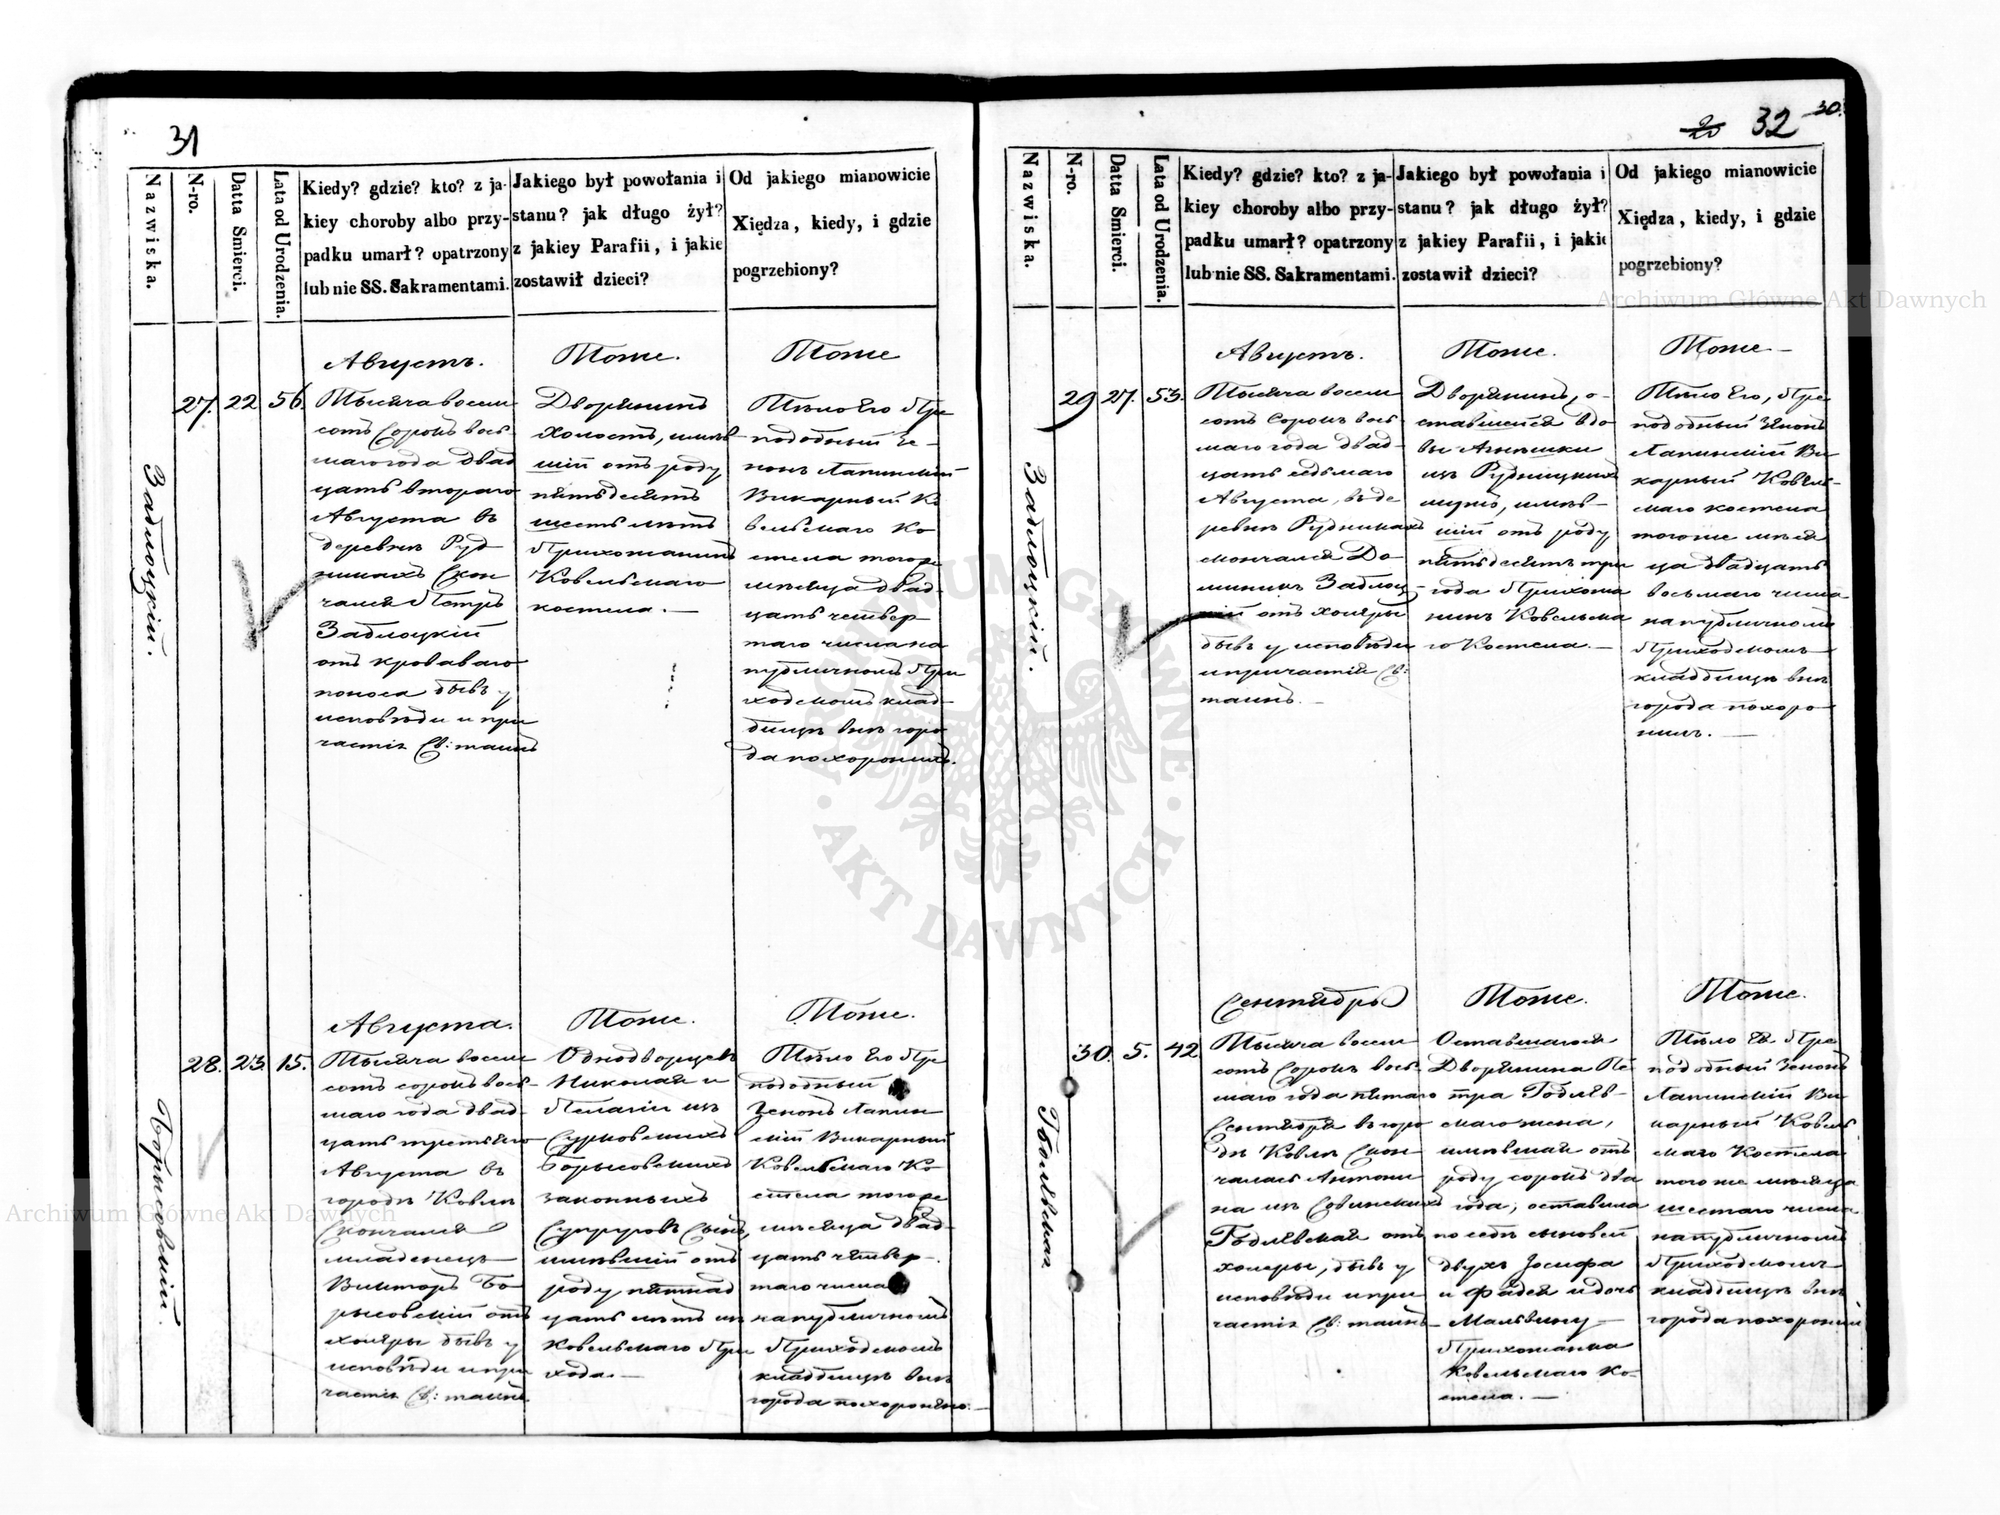 31
Nazwiska.
N-ro.
Datta Smierci.
Lata od Urodzenia.
Kiedy? gdzie? kto? z ja-
kiey choroby albo przy-
padku umarł? opatrzony
lub nie SS. Sakramentami.
Jakiego był powołania i
stanu? jak długo żył?
z jakiey Parafii, i jakie
zostawił dzieci?
Od jakiego mianowicie
Xiędza, kiedy, i gdzie
pogrzebiony?
Заблоцкій.
27.
22
56.
Августъ.
Тысяча восем
сотъ сорокъ вось
маго года двад
цать втораго
Августа въ
деревнѣ Руд
никахъ скон
чался Петръ
Заблоцкій
отъ кроваваго
поноса бывъ у
исповѣди и при
частія Св: таинъ
Тоже.
Дворянинъ
холостъ, имѣв
шій отъ роду
пятьдесятъ
шесть лѣтъ
Прихожанинъ
Ковельскаго
костела. —
Тоже
Тѣло его Пре
подобный Зе-
нонъ Лапинскій
Викарный Ко
вельскаго Ко
стела тогоже
мѣсяца двад
цать четвер
таго числа на
публичномъ При
ходскомъ клад
бищѣ внѣ горо
да похоронилъ.
Борысовскій.
28.
23.
15.
Августа.
Тысяча восем
сотъ сорокъ вось-
маго года двад-
цать третьяго
Августа въ
городѣ Ковлѣ
Скончался
младенецъ
Викторъ Бо
рысовскій отъ
холеры бывъ у
исповѣди и при
частія Св: таинъ
Тоже.
Однодворцевъ
Николая и
Пелагіи изъ
Сурковскихъ
Борысовскихъ
законныхъ
Супруговъ Сынъ,
имѣвшій отъ
роду пятнад
цать лѣтъ изъ
Ковельскаго При
хода. —
Тоже.
Тѣло его Пре
подобный
Зенонъ Лапин
скій Викарный
Ковельскаго Ко
стела тогоже
мѣсяца двад-
цать четвер-
таго числа
на публичномъ
Приходскомъ
кладбищѣ внѣ
города похоронено. —
20 32 30.
Nazwiska.
N-ro.
Datta Smierci.
Lata od Urodzenia.
Kiedy? gdzie? kto? z ja-
kiey choroby albo przy-
padku umarł? opatrzony
lub nie SS. Sakramentami.
Jakiego był powołania i
stanu? jak długo żył?
z jakiey Parafii, i jakie
zostawił dzieci?
Od jakiego mianowicie
Xiędza, kiedy, i gdzie
pogrzebiony?
Заблоцкій.
29
27.
53.
Августъ.
Тысяча восем
сотъ сорокъ вось
маго года двад
цать седьмаго
Августа, въ де
ревнѣ Рудникахъ
скончался До
миникъ Заблоц
кій отъ холеры
бывъ у исповѣди
и причастія Св:
таинъ. —
Тоже.
Дворянинъ, о-
ставшейся вдо
вы Агнѣшки
изъ Рудницкихъ
мужъ, имѣв-
шій отъ роду
пятьдесятъ три
года Прихожа
нинъ Ковельска
го Костела. —
Тоже —
Тѣло его, Пре
подобный Зенонъ
Лапинскій Ви
карный Ковель-
скаго костела
тогоже мѣся
ца двадцать
восьмаго числа
на публичномъ
Приходскомъ
кладбищѣ внѣ
города похоро-
нилъ. —
Гоблѣвская
30.
5.
42
Сентябрь
Тысяча восем
сотъ сорокъ вось
маго года пятаго
Сентября въ горо
дѣ Ковлѣ Скон
чалась Антони
на изъ Совинскихъ
Гоблѣвская отъ
холеры, бывъ у
исповѣди и при
частія Св: таинъ
Тоже.
Оставшагося
Дворянина Пе
тра Гоблѣв-
скаго жена,
имѣвшая отъ
роду сорокъ два
года, оставила
по себѣ сыновей
двухъ Іосифа
и Фадея и дочь
Мальвину —
Прихожанка
Ковельскаго Ко-
стела. —
Тоже.
Тѣло Ея Пре
подобный Зенонъ
Лапинскій Ви
карный Ковель
скаго Костела
того же мѣсяца
шестаго числа
на публичномъ
Приходскомъ
кладбищѣ внѣ
города похоронилъ
Archiwum Główne Akt Dawnych
Archiwum Główne Akt Dawnych
ARCHIWUM GŁÓWNE · AKT DAWNYCH ·